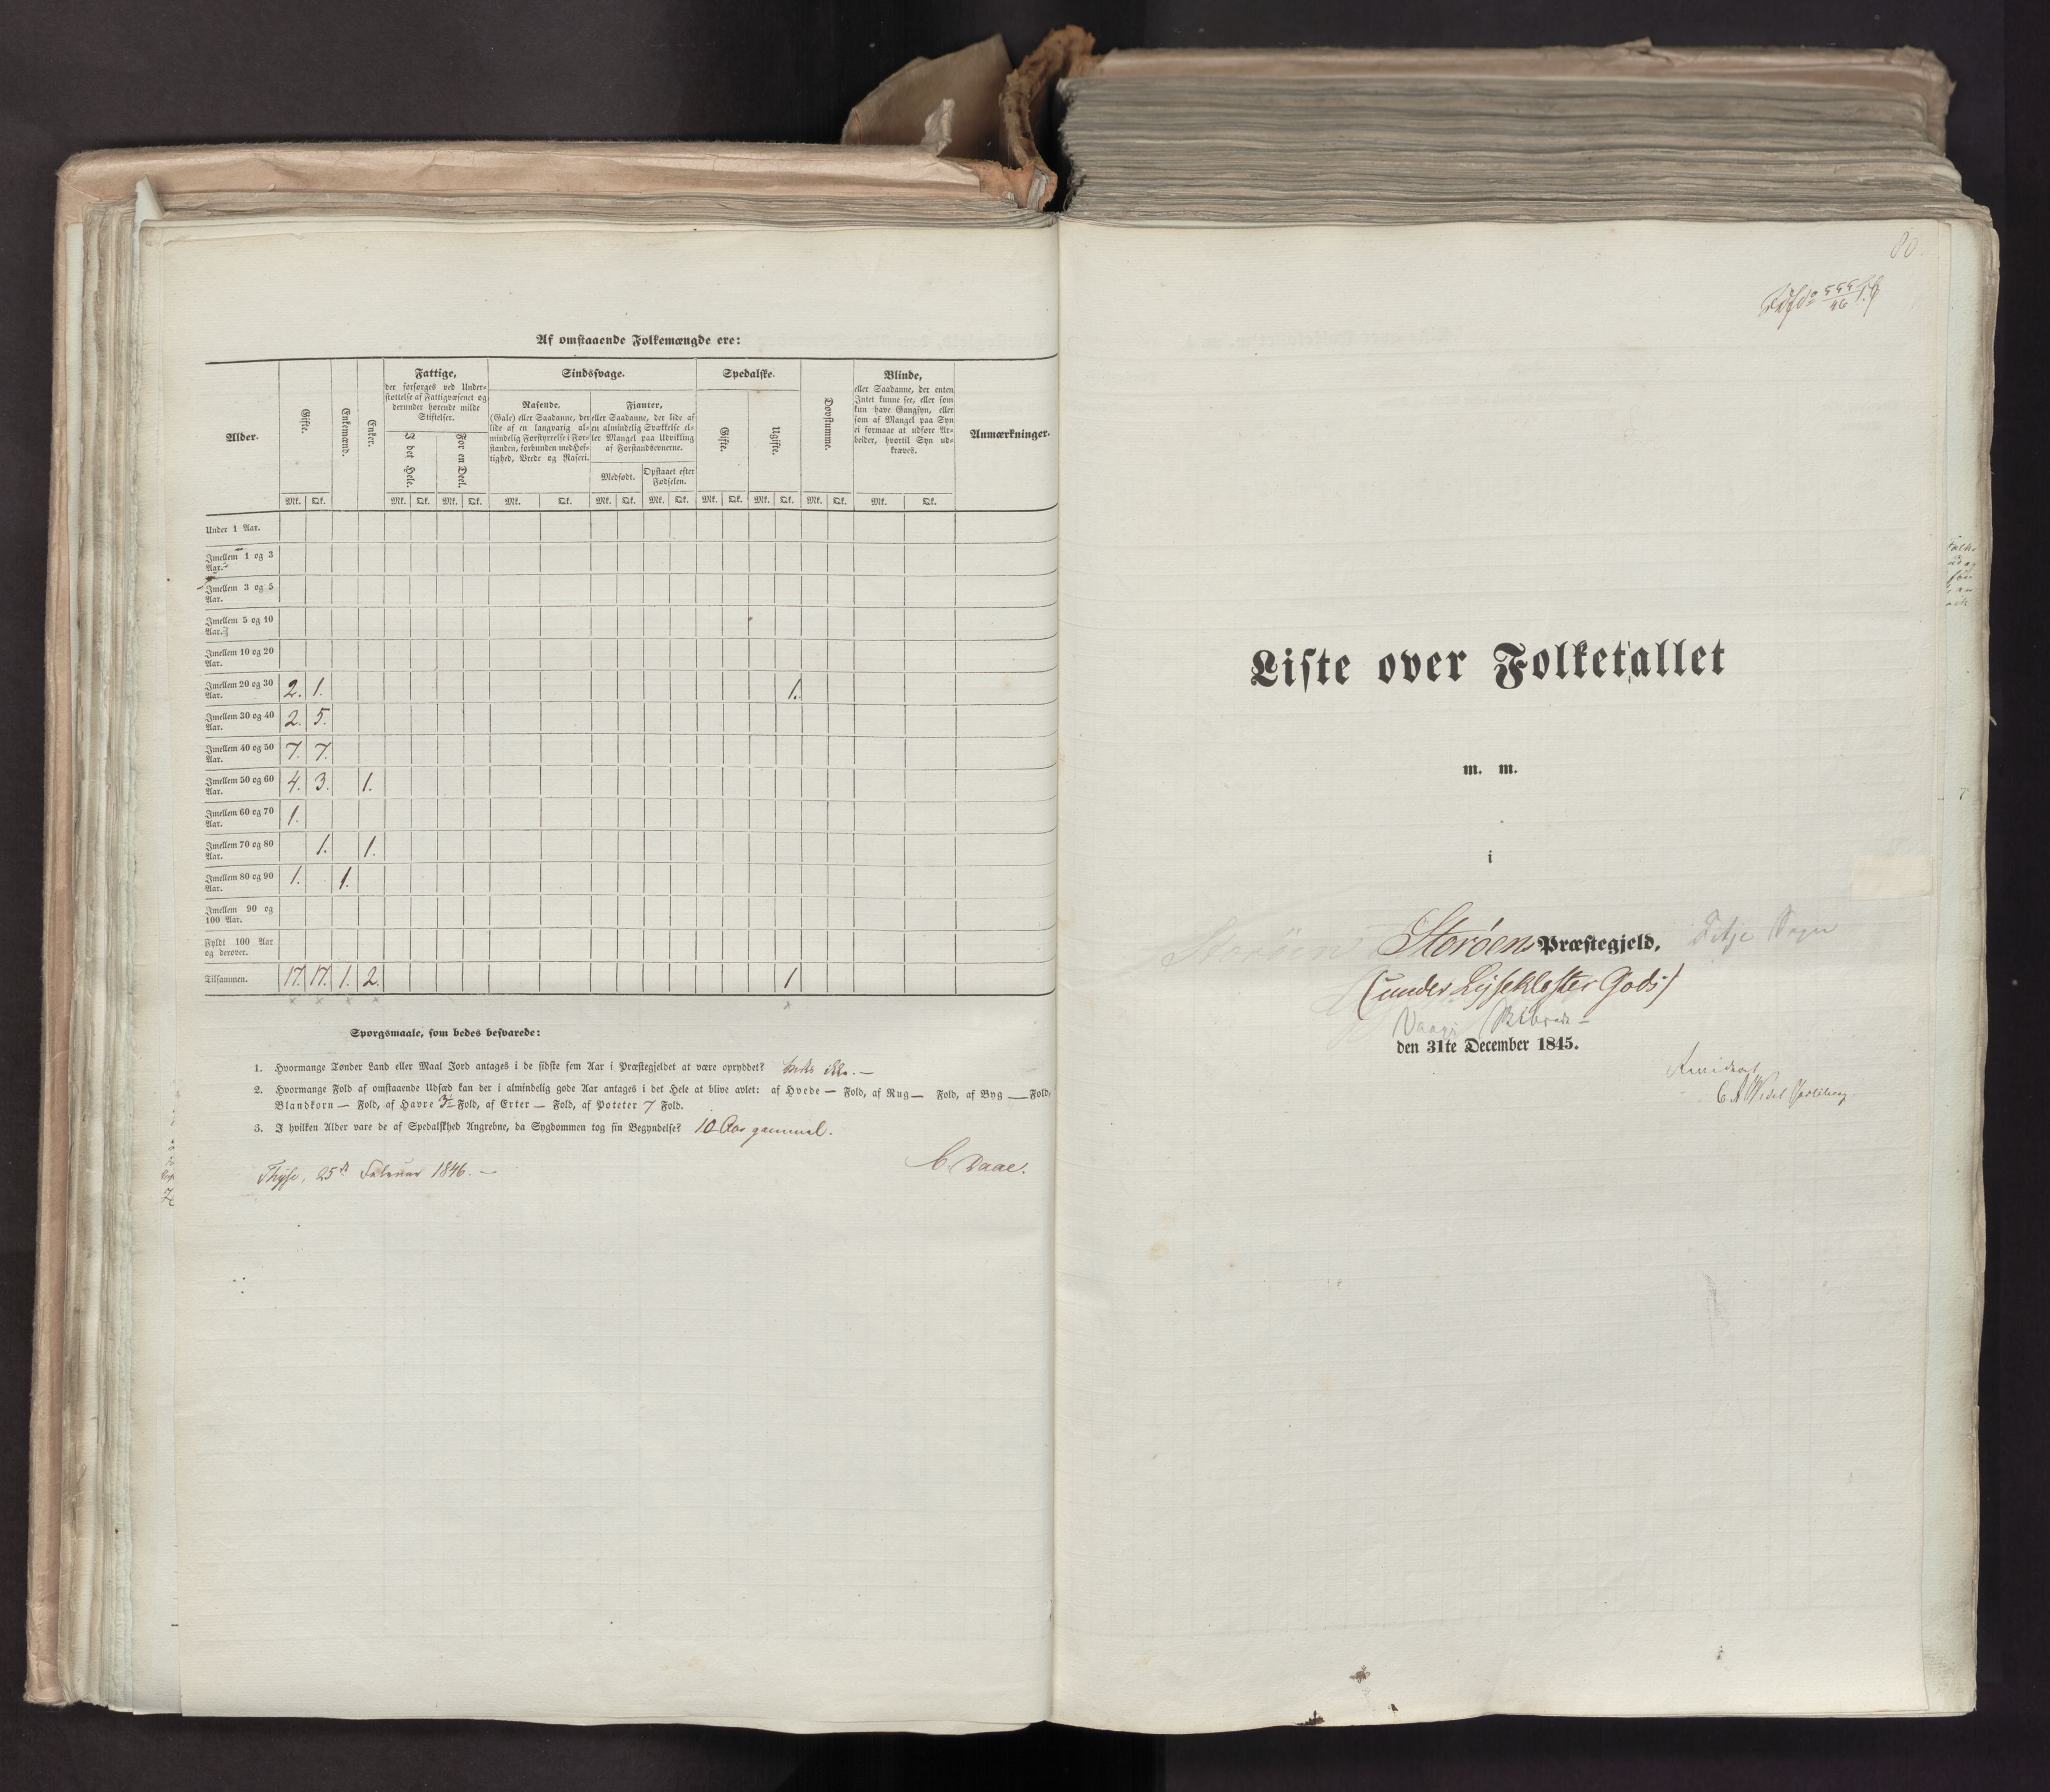 Af omstaaende Folkemængde ere:
Alder.
Gifte.
Enkemænd.
Enker.
Fattige,
der forsørges ved Under-
støttelse af Fattigvæsenet og
derunder hørende milde
Stiftelser.
I det Hele.
For en Deel.
Sindssvage.
Rasende.
(Gale) eller Saadanne, der
lide af en langvarig al-
mindelig Forstyrrelse i For-
standen, forbunden med Hef-
tighed, Vrede og Raseri.
Fjanter,
eller Saadanne, der lide af
en almindelig Svækkelse el-
ler Mangel paa Udvikling
af Forstandsevnerne.
Medfødt.
Opstaaet efter
Fødselen.
Spedalske.
Gifte.
Ugifte.
Døvstumme.
Blinde,
eller Saadanne, der enten
Intet kunne see, eller som
kun have Gangsyn, eller
som af Mangel paa Syn
ei formaae at udføre Ar-
beider, hvortil Syn ud-
kræves.
Anmærkninger.
Mk. Qk. Mk. Qk. Mk. Qk. Mk. Qk. Mk. Qk. Mk. Qk. Mk. Qk. Mk. Qk. Mk. Qk. Mk. Qk.
Under 1 Aar.
Imellem 1 og 3
Aar.
Imellem 3 og 5
Aar.
Imellem 5 og 10
Aar.
Imellem 10 og 20
Aar.
Imellem 20 og 30 2. 1. 1.
Aar.
Imellem 30 og 40 2. 5.
Aar.
Imellem 40 og 50 7. 7.
Aar.
Imellem 50 og 60 4. 3. 1.
Aar.
Imellem 60 og 70 1.
Aar.
Imellem 70 og 80 1. 1.
Aar.
Imellem 80 og 90 1. 1.
Aar.
Imellem 90 og
100 Aar.
Fyldt 100 Aar
og derover.
Tilsammen. 17. 17. 1. 2. 1
Spørgsmaale, som bedes besvarede:
1. Hvormange Tønder Land eller Maal Jord antages i de sidste fem Aar i Præstegjeldet at være opryddet?
2. Hvormange Fold af omstaaende Udsæd kan der i almindelig gode Aar antages i det Hele at blive avlet: af Hvede — Fold, af Rug — Fold, af Byg — Fold,
Blandkorn — Fold, af Havre 3½ Fold, af Erter — Fold, af Poteter 7 Fold.
3. I hvilken Alder vare de af Spedalskhed Angrebne, da Sygdommen tog sin Begyndelse? 10 Aar gammel.
25de Februar 1846. —
C. Daae.
80.
Liste over Folketallet
m. m.
i
Storøens Præstegjeld, Fitje Sogn
(under Lysekloster Gods)
den 31te December 1845.